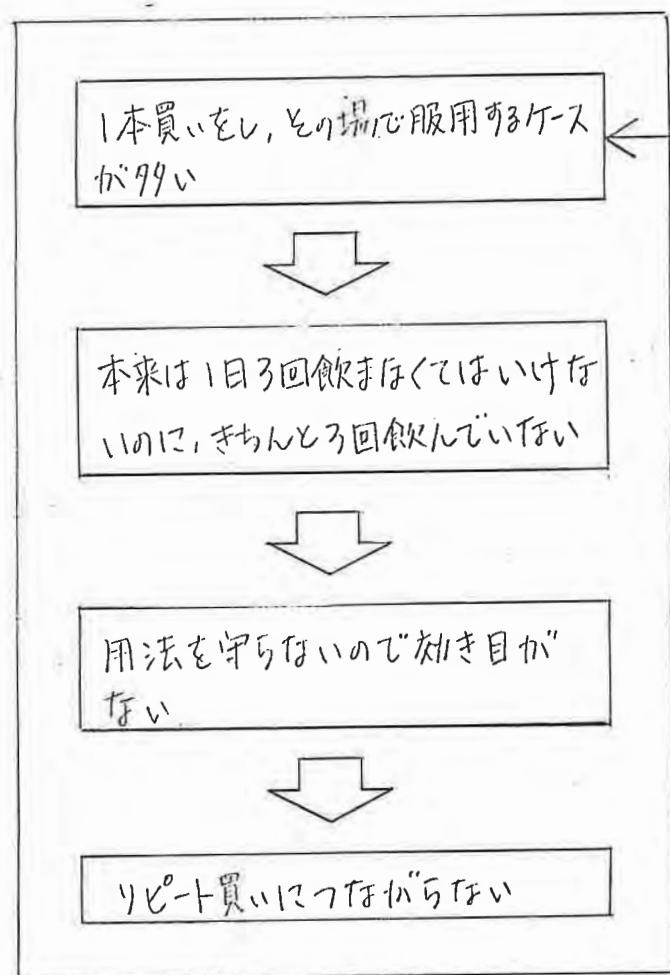 1本買いをし,その場で服用するケース
が多い
本来は1日3回飲まなくてはいけな
いのに,きちんと3回飲んでいない
用法を守らないので効き目が
ない
リピート買いにつながらない